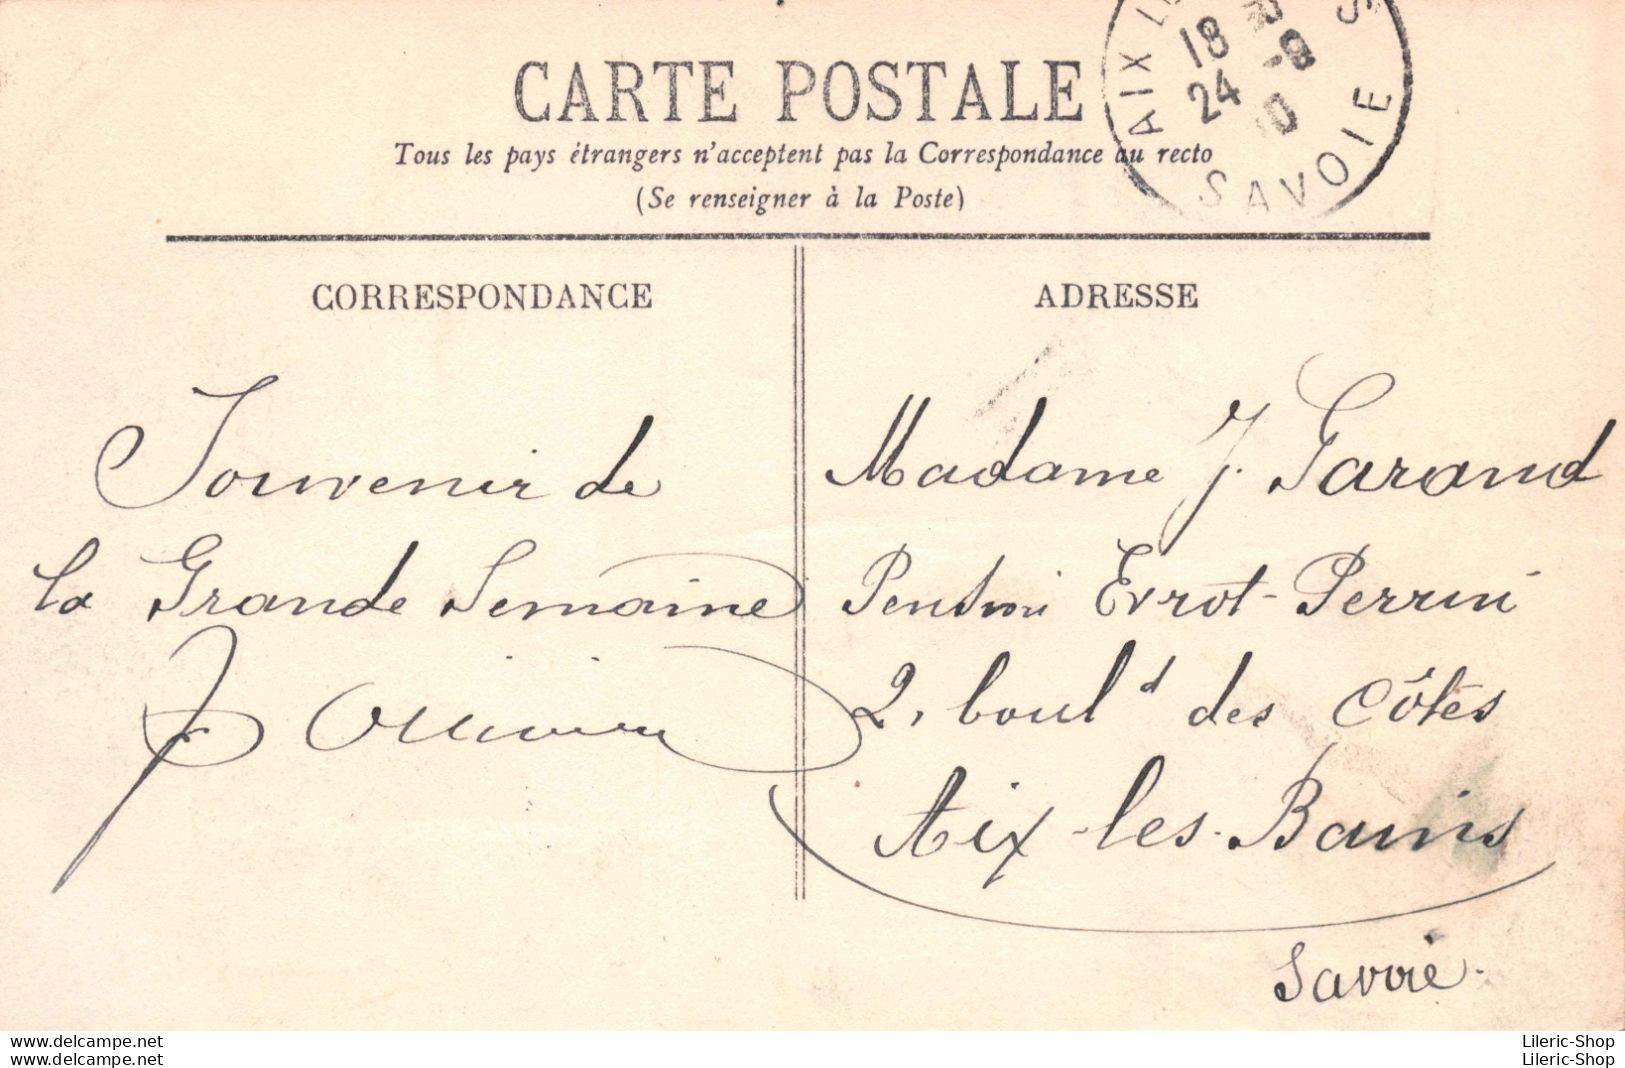 CARTE POSTALE
Tous les pays étrangers n'acceptent pas la Correspondance au recto
(Se renseigner à la Poste)
AIX LE S
18
24 -8
SAVOIE
CORRESPONDANCE
ADRESSE
Souvenir de
la Grande Semaine
J Ollivier
Madame J. Garand
Pension Evrot-Perrin
2, boul^d des Côtes
Aix-les-Bains
Savoie.
www.delcampe.net
www.delcampe.net
Lileric-Shop
Lileric-Shop